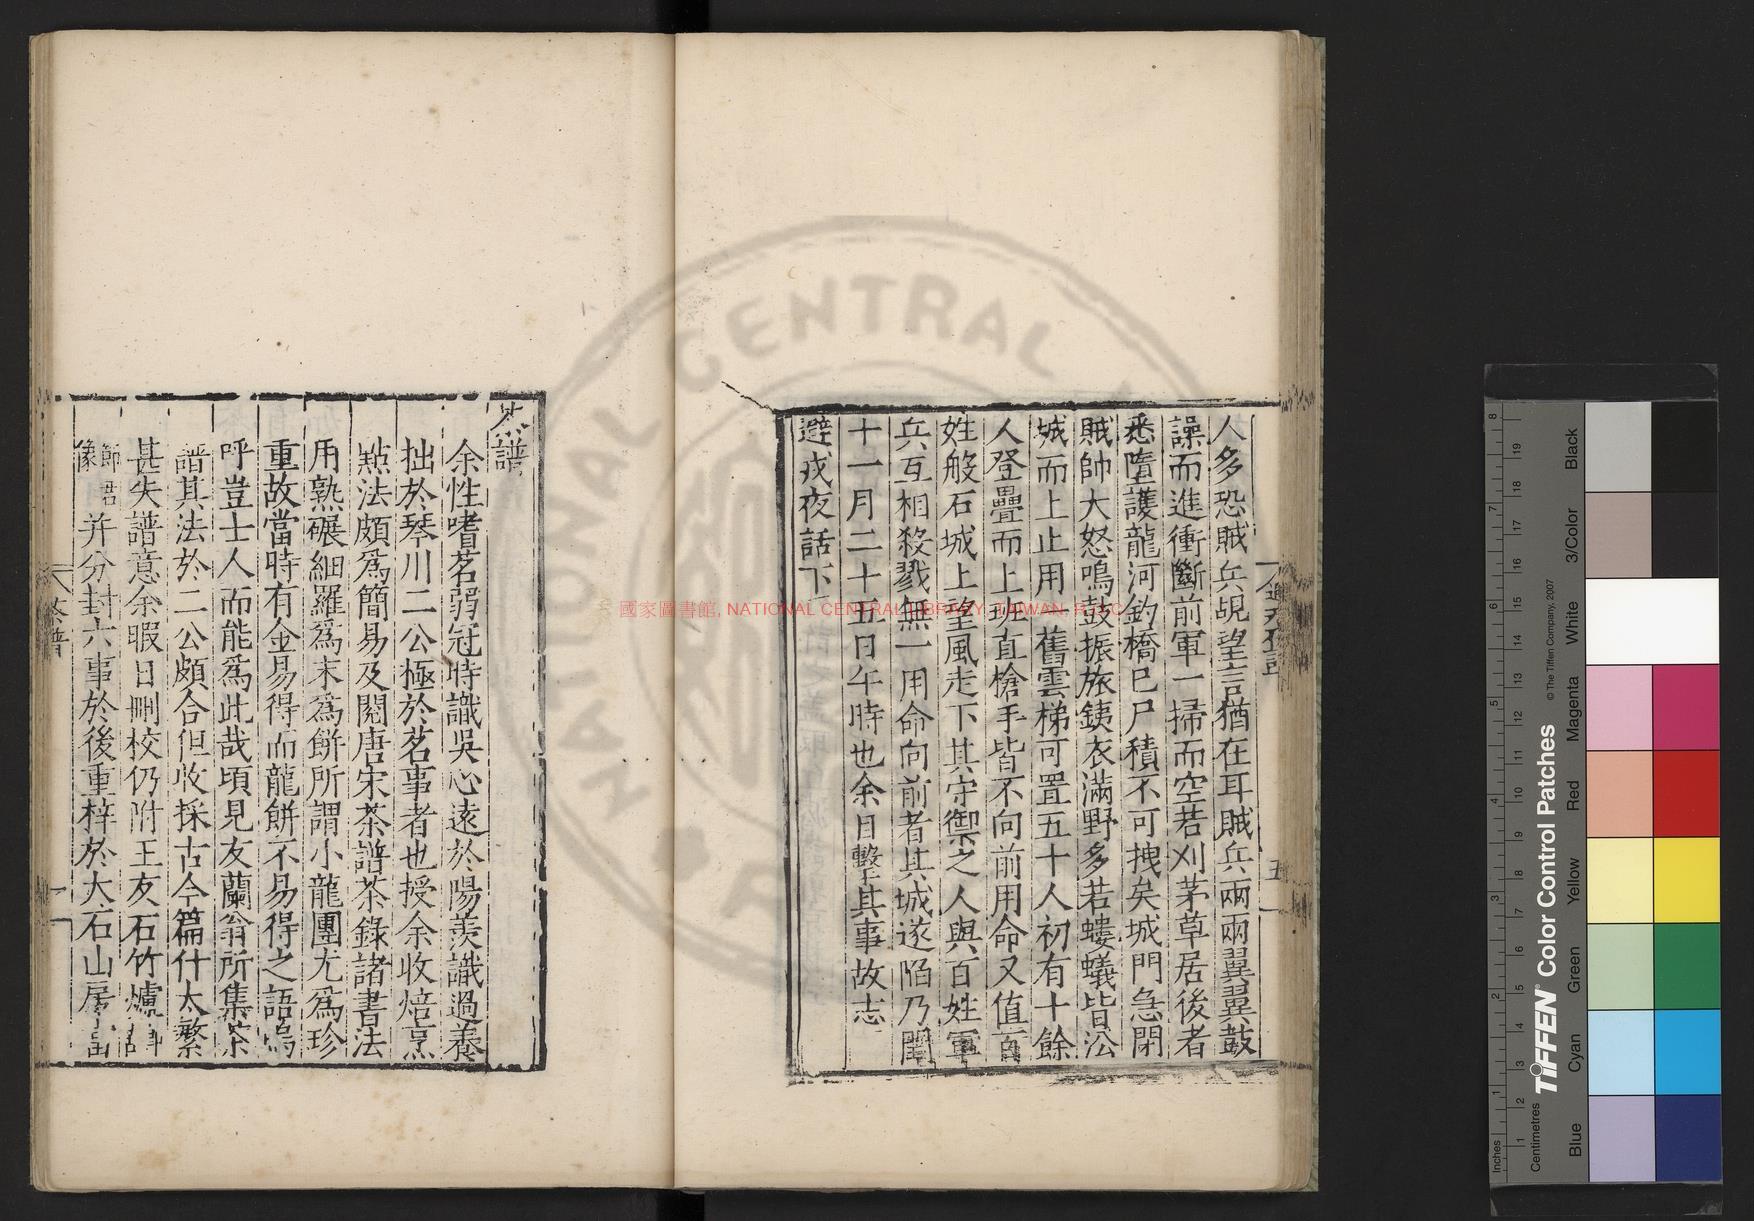 人多恐賊兵覘望言猶在耳賊兵兩兩翼翼鼓
譟而進衝斷前軍一掃而空若刈茅草居後者
悉墮護龍河釣橋巳尸積不可拽矣城門急閉
賊帥大怒鳴鼓振旅銕衣滿野多若螻蟻皆㳂
城而上止用一舊雲梯可置五十人初有十餘
人登疊而上班直槍手皆不向前用命又值百
姓般石城上望風走下其守禦之人與百姓軍
兵互相殺戮無一用命向前者其城遂陷乃閏
十一月二十五日午時也余目擊其事故志
避戎夜話下
茶譜
余性嗜茗弱冠時識吳心遠於陽羨識過養
拙於琴川二公極於茗事者也授余收焙烹
點法頗爲簡易及閱唐宋茶譜茶錄諸書法
用熟碾細羅爲末爲餅所謂小龍團尤爲珍
重故當時有金易得而龍餅不易得之語嗚
呼豈士人而能爲此哉頃見友蘭翁所集茶
譜其法於二公頗合但收採古今篇什太繁
甚失譜意余暇日刪校仍附王友石竹爐
并分封六事於後重梓於大石山房
茶譜
國家圖書館, NATIONAL CENTRAL LIBRARY, TAIWAN, R.O.C
NATIONAL CENTRAL
TIFFEN Color Control Patches
© The Tiffen Company, 2007
Inches
Centimetres
Blue
Cyan
Green
Yellow
Red
Magenta
White
3/Color
Black